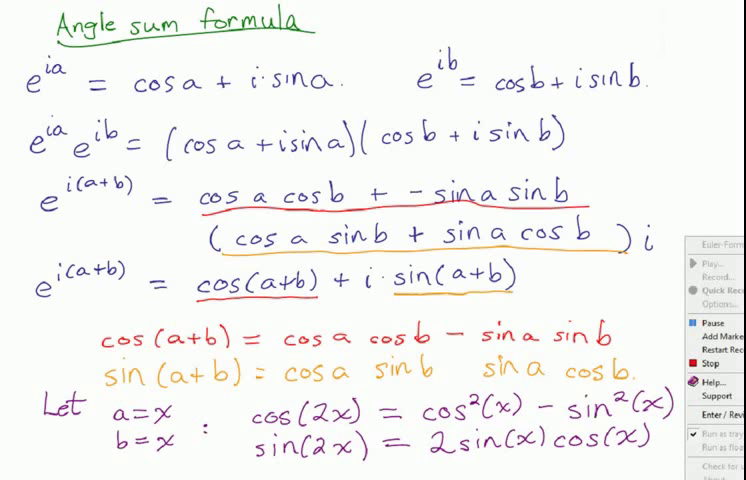 Angle sum formula
e^{ia} = cos a + i · sin a. e^{ib} = cos b + i sin b.
e^{ia} e^{ib} = (cos a + i sin a)(cos b + i sin b)
e^{i(a+b)} = cos a cos b + - sin a sin b
(cos a sin b + sin a cos b) i
e^{i(a+b)} = cos(a+b) + i · sin(a+b)
cos(a+b) = cos a cos b - sin a sin b
sin(a+b) = cos a sin b sin a cos b.
Let a=x : cos(2x) = cos²(x) - sin²(x)
b=x sin(2x) = 2 sin(x) cos(x)
Euler-Form
Play...
Record...
Quick Rec
Options...
Pause
Add Marke
Restart Rec
Stop
Help...
Support
Enter / Revi
Run as tray
Run as floa
Check for u